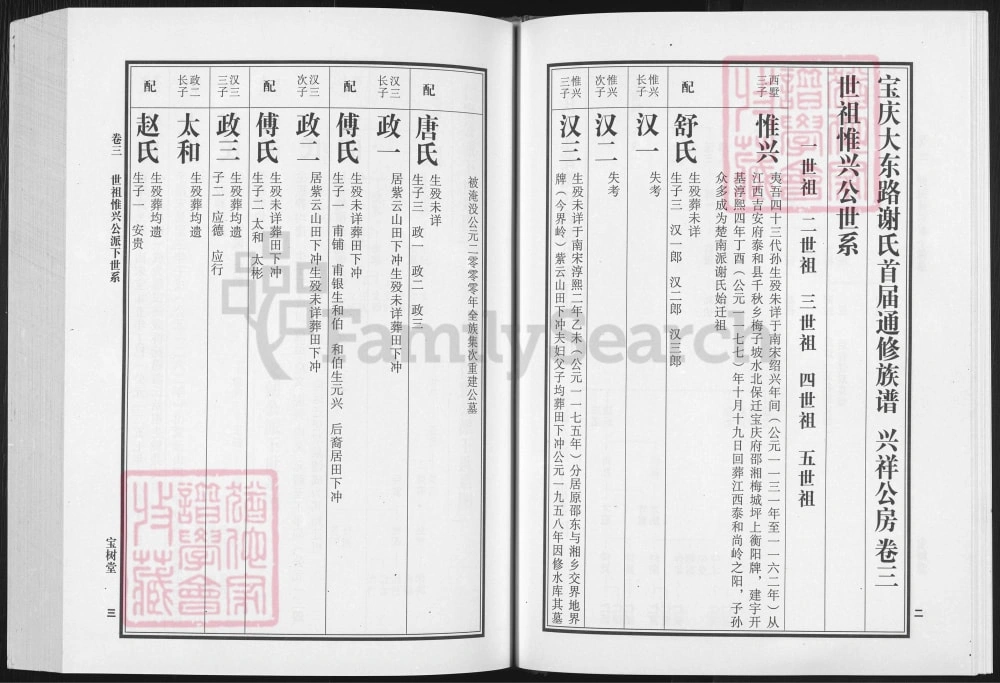 宝庆大东路谢氏首届通修族谱 兴祥公房 卷三
世祖惟兴公世系
一世祖 二世祖 三世祖 四世祖 五世祖
西墅
三子
惟兴
夷吾四十三代孙生殁未详于南宋绍兴年间（公元一一三一年至一一六二年）从
江西吉安府泰和县千秋乡梅子坡水北保迁宝庆府邵湘梅城坪上衡阳牌，建宇开
基淳熙四年丁酉（公元一一七七）年十月十九日回葬江西泰和尚岭之阳，子孙
众多成为楚南派谢氏始迁祖
配
舒氏
生殁葬未详
生子三 汉一郎 汉二郎 汉三郎
惟兴
长子
汉一
失考
惟兴
次子
汉二
失考
惟兴
三子
汉三
生殁未详于南宋淳熙二年乙未（公元一一七五年）分居原邵东与湘乡交界地界
牌（今界岭）紫云山田下冲夫妇父子均葬田下冲公元一九五八年因修水库其墓
二
被淹没公元二零零零年全族集次重建公墓
配
唐氏
生殁未详
生子三 政一 政二 政三
汉三
长子
政一
居紫云山田下冲生殁未详葬田下冲
配
傅氏
生殁未详葬田下冲
生子一 甫铺 甫银生和伯 和伯生元兴 后裔居田下冲
汉三
次子
政二
居紫云山田下冲生殁未详葬田下冲
配
傅氏
生殁未详葬田下冲
生子二 太和 太彬
汉三
三子
政三
生殁葬均遗
子二 应德 应行
政二
长子
太和
生殁葬均遗
配
赵氏
生殁葬均遗
生子一 安贵
卷三 世祖惟兴公派下世系
宝树堂
三
FamilySearch